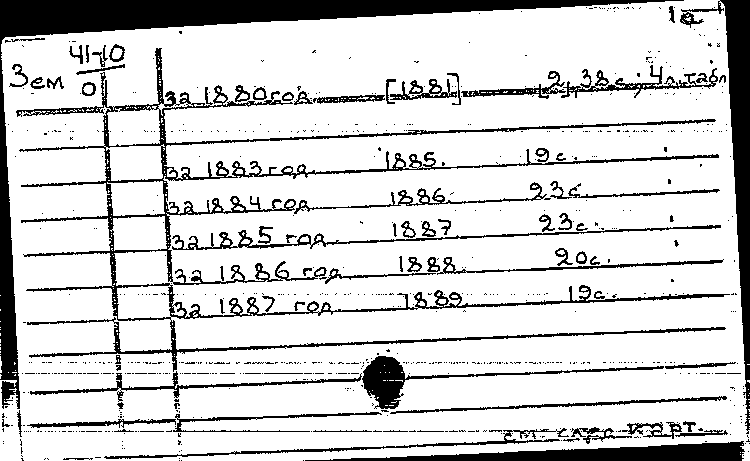 1а
Зем 41-10
0
за 1880 год [1881] [2], 38 с., 4 л. табл
за 1883 год. 1885. 19 с.
за 1884 год 1886. 23 с.
за 1885 год 1887 23 с.
за 1886 год 1888. 20 с.
за 1887 год 1889. 19 с.
см. след карт.